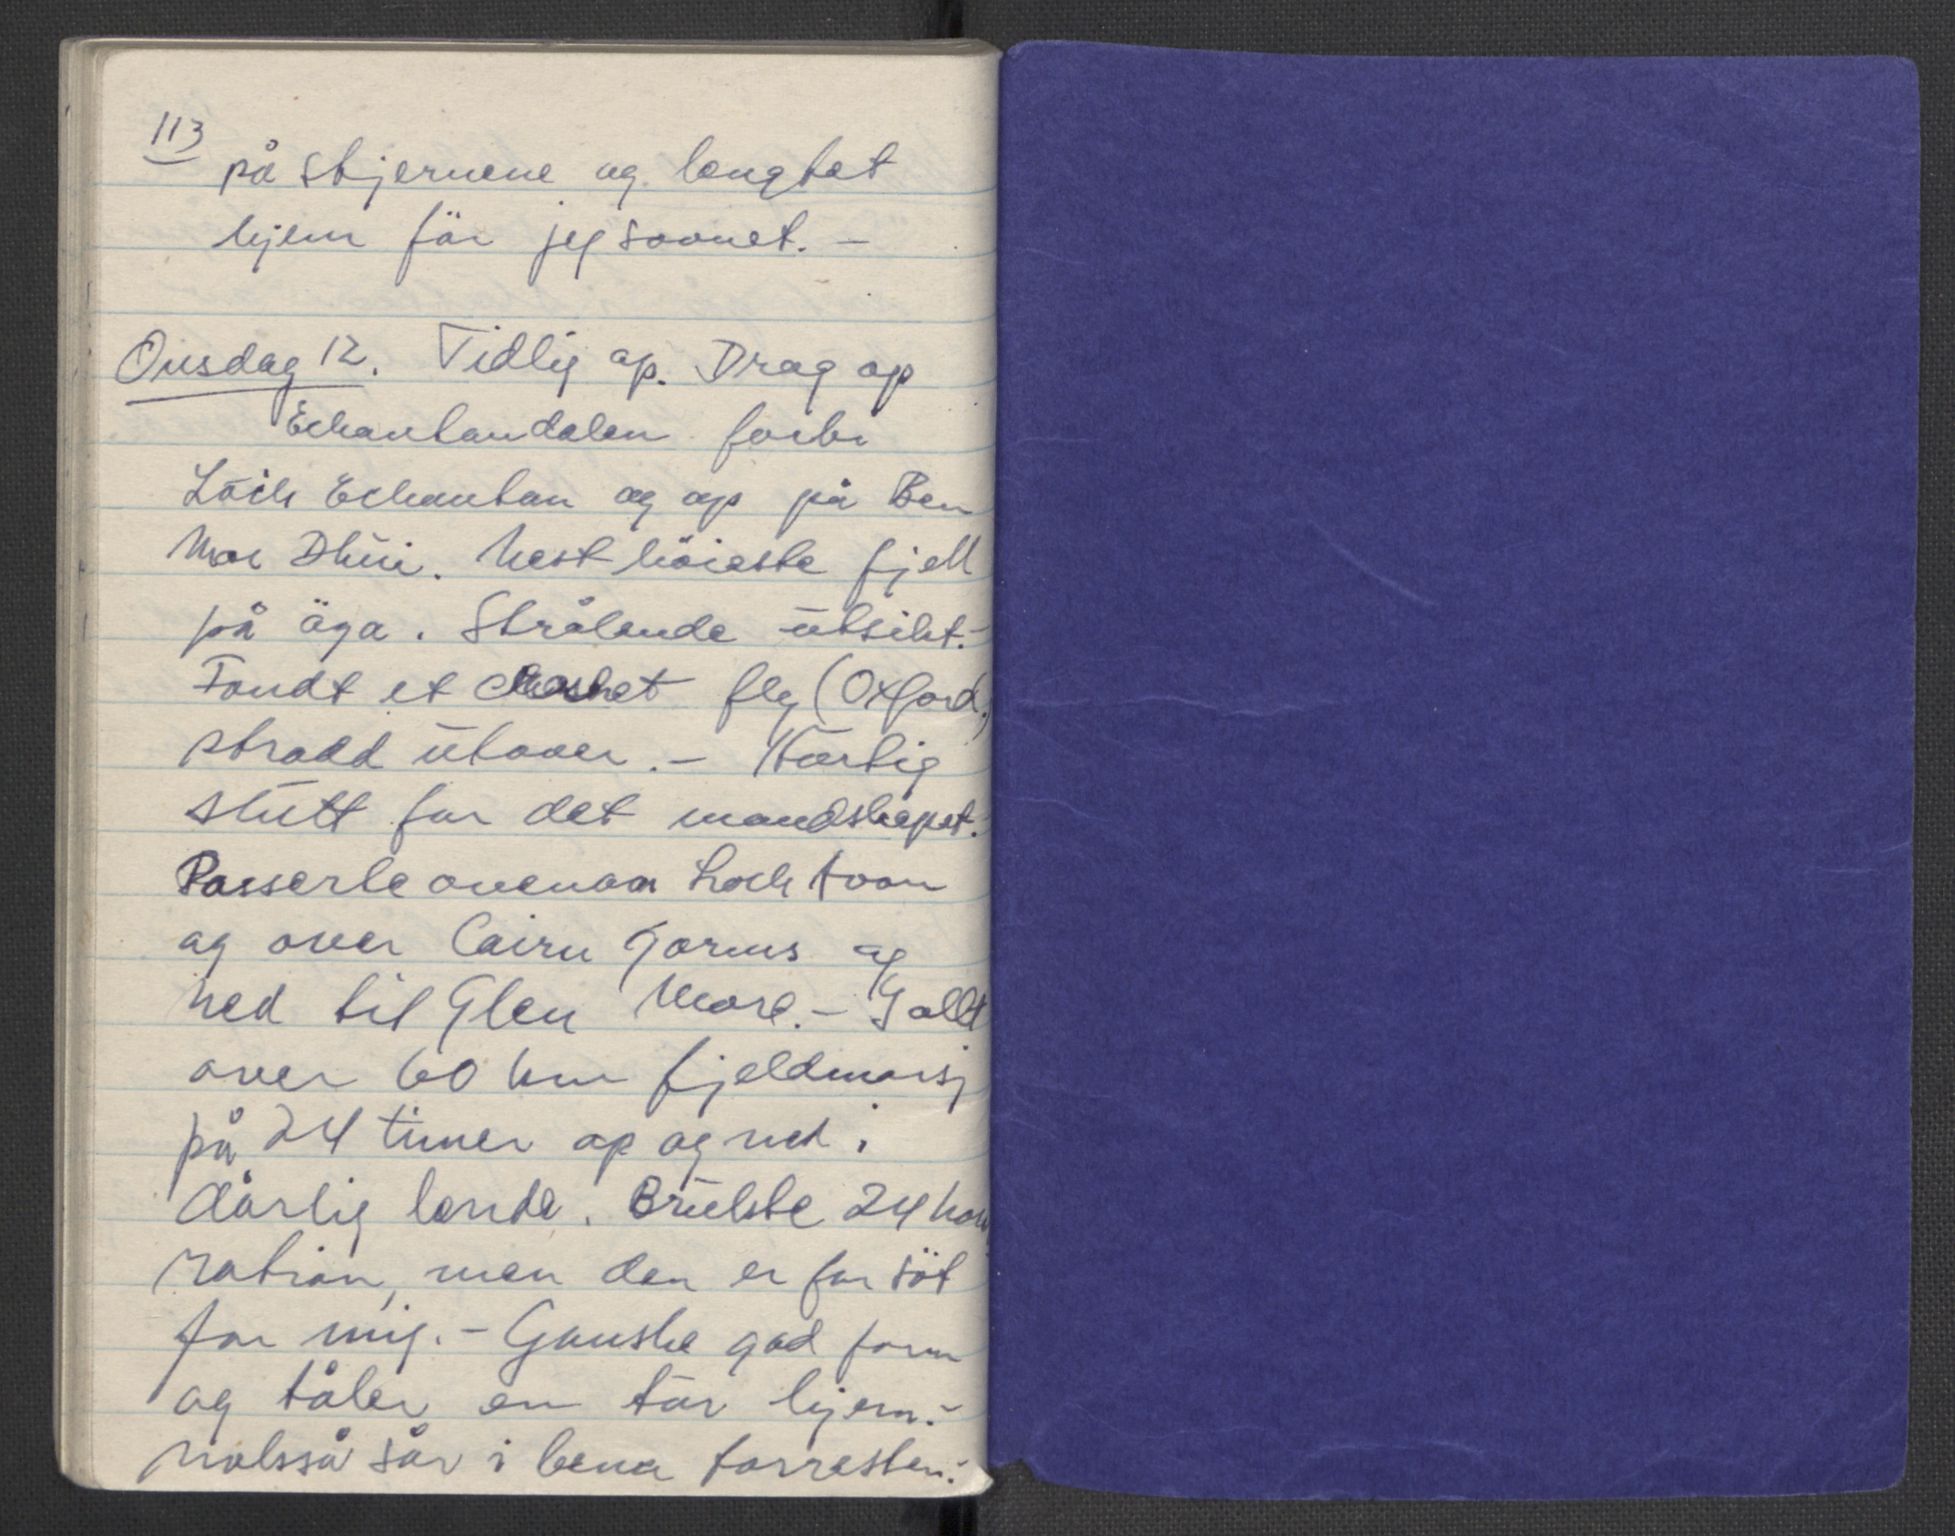 113
på stjernene og lengtet
hjem för jeg sovnet. –
Onsdag 12. Tidlig op. Drog op
Echantandalen forbi
Loch Echantan og op på Ben
Mac Dhui. Nest höieste fjell
på öya. Strålende utsikt. –
Fandt et crashet fly (Oxford)
strödd utover. – Hurtig
slutt for det mandskapet.
Passerte ovenom Loch Avon
og over Cairn Gorms og
ned til Glen More. – Gått
over 60 km fjeldmarsj
på 24 timer op og ned i
dårlig lende. Brukte 24 hour
ration, men den er for söt
for mig. – Ganske god form
og tåler en tur hjem. –
såre i bena forresten. –